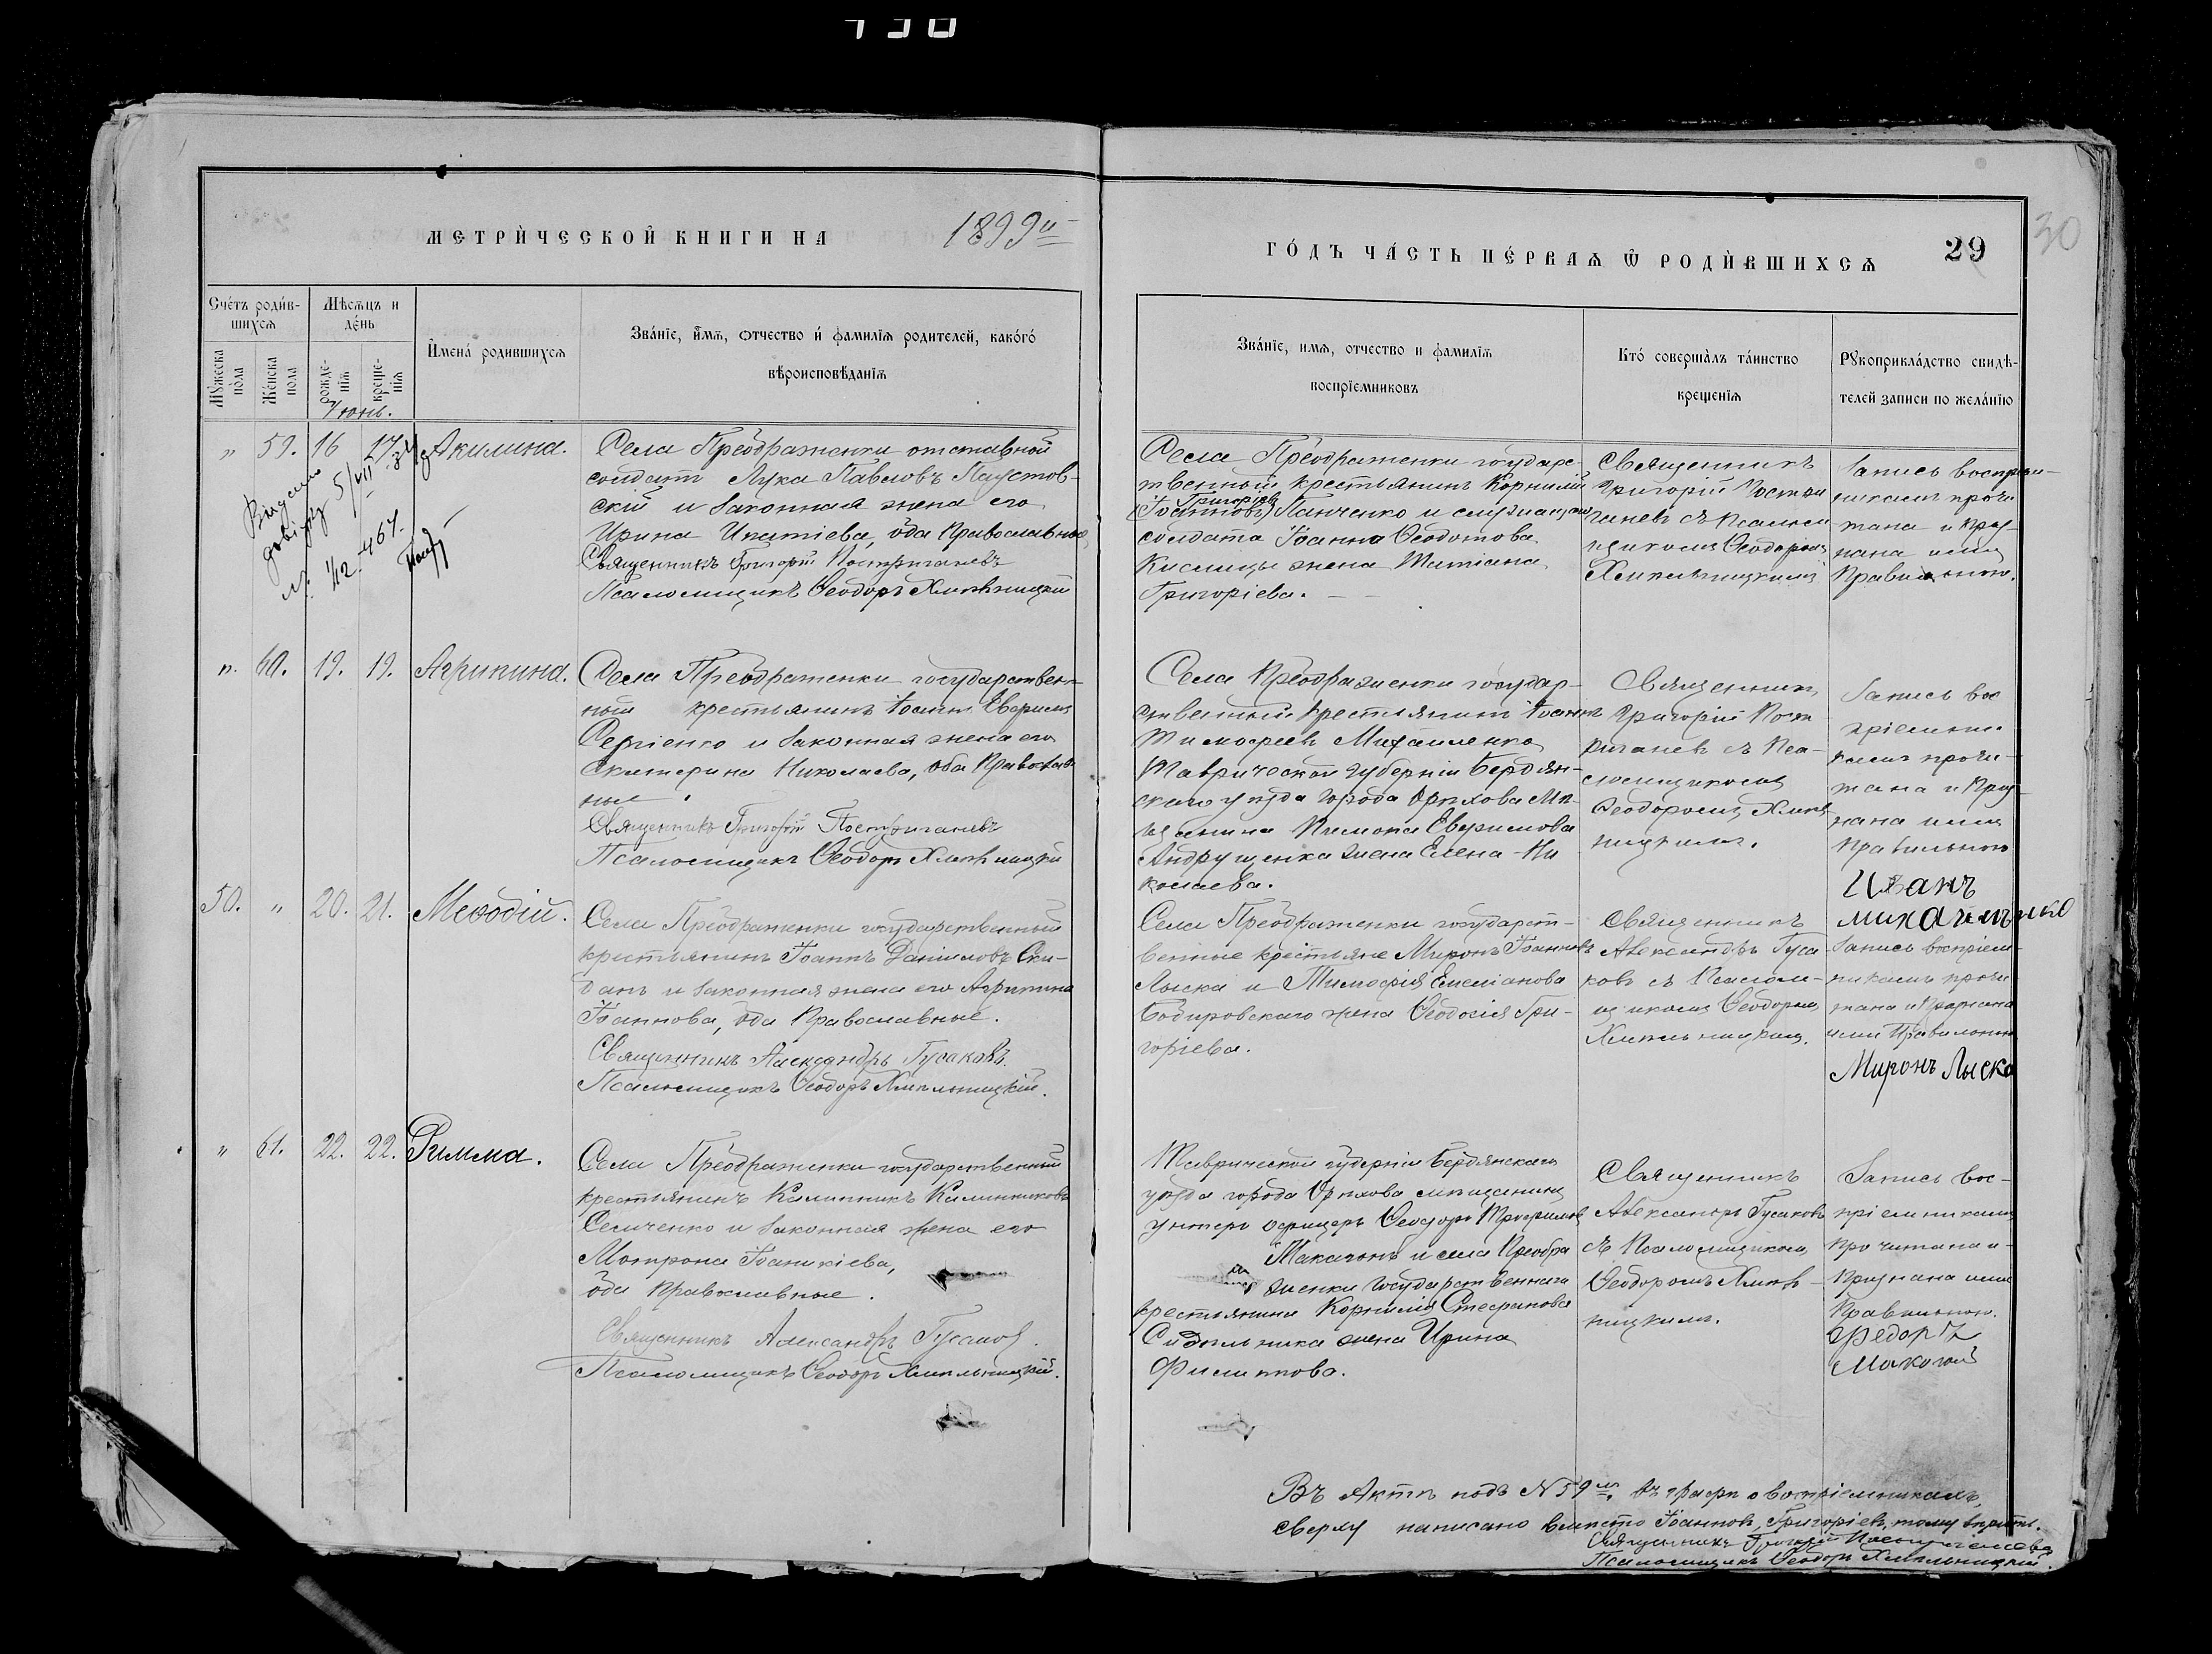 МЕТРИЧЕСКОЙ КНИГИ НА 1899й
ГОДЪ ЧАСТЬ ПЕРВАѦ Ѿ РОДИВШИХСѦ 29
30
Счетъ родив-
шихсѧ
Мѣсѧцъ и
день
Имена родившихсѧ
Званіе, имѧ, отчество и фамиліѧ родителей, какого
вѣроисповѣданіѧ
Мужеска
пола
Женска
пола
рожде-
ніѧ
креще-
ніѧ
Званіе, имѧ, отчество и фамиліѧ
воспріемниковъ
Кто совершалъ таинство
крещеніѧ
Рукоприкладство свидѣ-
телей записи по желанію
Іюнь.
" 59. 16 17 Акилина.
Села Преображенки отставной
солдатъ Лука Павловъ Паустов-
скій и законная жена его
Ирина Игнатіева, оба Православные,
Священникъ Григорій Постригачевъ
Псаломщикъ Ѳеодоръ Хмѣльницкій
Села Преображенки государс-
твенный крестьянинъ Корнилій
Григоріев
(Іоанновъ) Панченко и служащаго
солдата Іоанна Ѳеодотова
Кислицы жена Татіана
Григоріева.
Священникъ
Григорій Постри
гачевъ съ Псаломщ
щикомъ Ѳеодоромъ
Хмѣльницкимъ
Запись воспріем-
никамъ прочи
тана и приз-
нана ими
Правильною.
". 60. 19. 19. Агрипина.
Села Преображенки государствен-
ный крестьянинъ Іоаннъ Евѳимовъ
Сергіенко и законная жена его
Екатерина Николаева, оба Православ-
ные.
Священникъ Григорій Постригачевъ
Псаломщикъ Ѳеодоръ Хмѣльницкій
Села Преображенки государ-
ственный крестьянинъ Іоаннъ
Тимофеевъ Михайленко
Таврической губерніи Бердян-
скаго уѣзда города Орѣхова мѣ-
щанина Пимона Евфимова
Андрущенка жена Елена Ни
колаева.
Священникъ
Григорій Пост
ригачевъ съ Пса-
ломщикомъ
Ѳеодоромъ Хмѣль
ницкимъ.
Запись вос
пріемни
камъ прочи-
тана и приз-
нана ими
правильною
Иванъ
михайленко
50. " 20. 21. Меѳодій.
Села Преображенки государственный
крестьянинъ Іоаннъ Даніиловъ Ски-
данъ и законная жена его Агрипина
Іоаннова, оба Православные.
Священникъ Александръ Гусаковъ.
Псаломщикъ Ѳеодоръ Хмѣльницкій.
Села Преображенки государст-
венные крестьяне Миронъ Іоанновъ
Лыска и Тимофія Емеліанова
Бодировскаго жена Ѳеодосія Гри-
горіева.
Священникъ
Александръ Гуса
ковъ съ Псалом-
щикомъ Ѳеодоромъ
Хмѣльницкимъ.
Запись воспріем-
никамъ прочи
тана и признана
ими Правильною
Миронъ Лыска
" 61. 22. 22. Римма.
Села Преображенки государственный
крестьянинъ Калинникъ Калинниковъ
Семченко и законная жена его
Матрона Іоаникіева,
оба Православные.
Священникъ Александръ Гусаковъ.
Псаломщикъ Ѳеодоръ Хмѣльницкій.
Таврической губерніи Бердянскаго
уѣзда города Орѣхова мѣщанинъ
унтеръ офицеръ Ѳеодоръ Трофимовъ
Макагонъ и села Преобра
женки Государственнаго
крестьянина Корнилія Стефанова
Сидѣльника жена Ирина
Филиппова.
Священникъ
Александръ Гусаковъ
съ Псаломщикомъ
Ѳеодоромъ Хмѣль-
ницкимъ.
Запись вос-
пріемникамъ
прочитана и
признана ими
Правильною.
Федоръ
Макагон
Въ Актѣ подъ № 59м. въ графѣ о воспріемникахъ,
сверху написано вмѣсто Іоанновъ, Григоріевъ, тому вѣрить.
Священникъ Григорій Постригачевъ
Псаломщикъ Ѳеодоръ Хмѣльницкій.